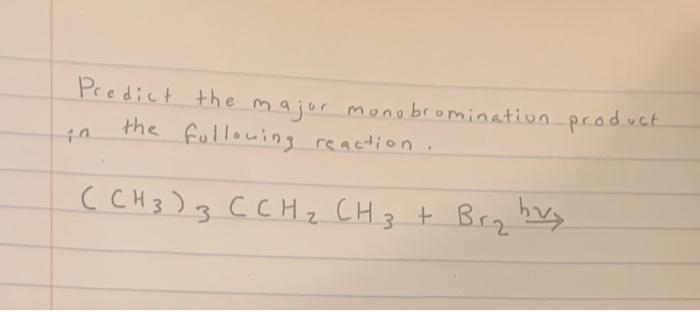 Predict the major monobromination product
in the following reaction.
(CH3)3CCH2CH3 + Br2 hν→